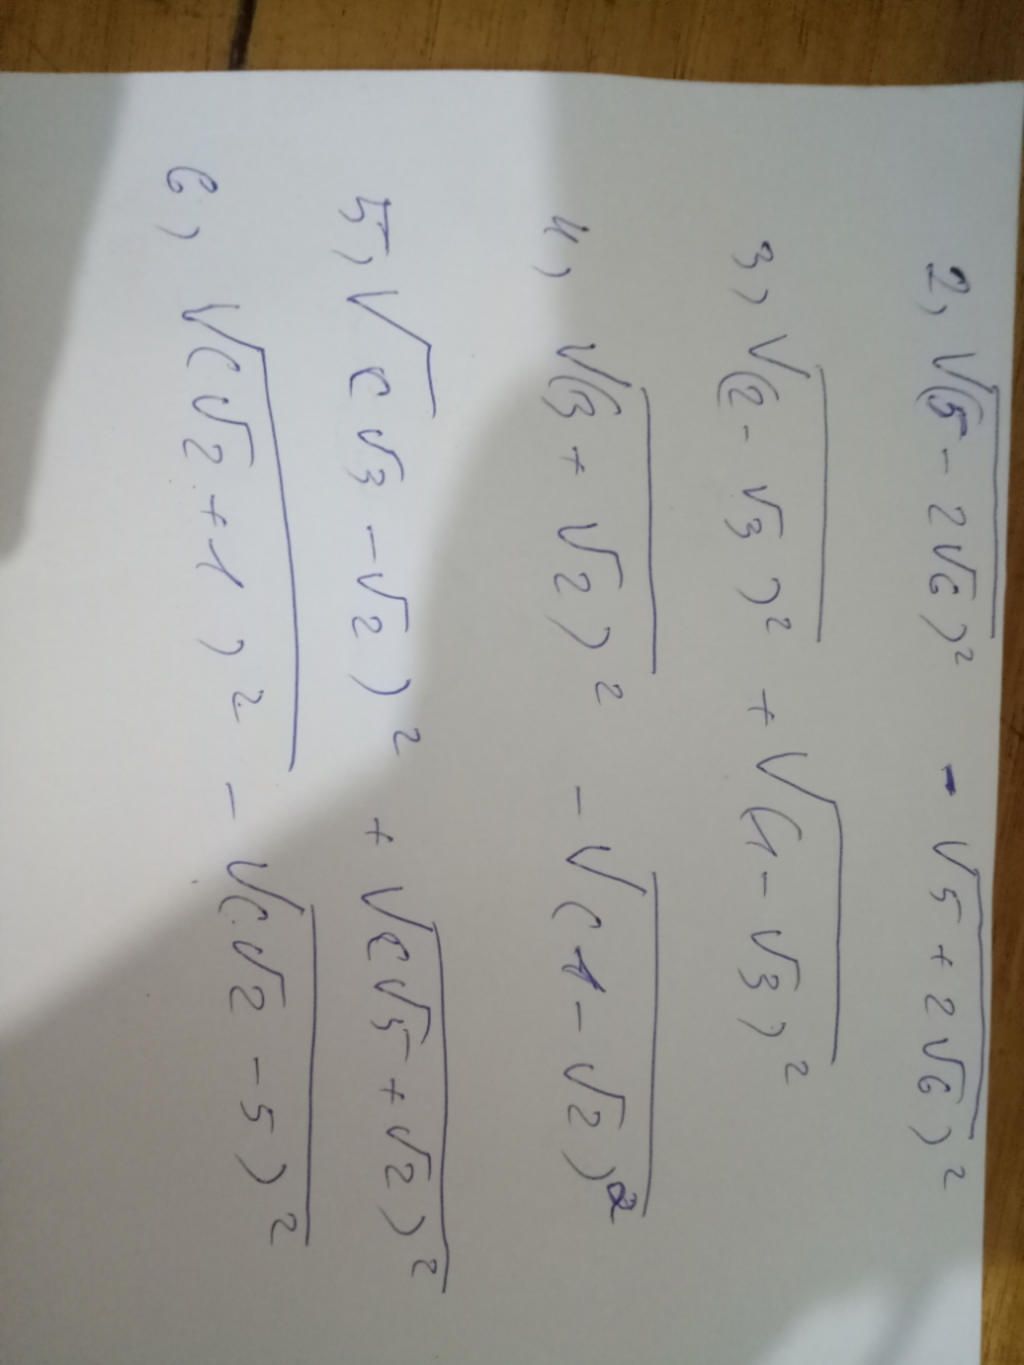 2, √(5-2√6)² - √5+2√6)²
3, √(2-√3)² + √(1-√3)²
4, √(3+√2)² - √(1-√2)²
5, √(√3-√2)² + √(√5+√2)²
6, √(√2+1)² - √(√2-5)²